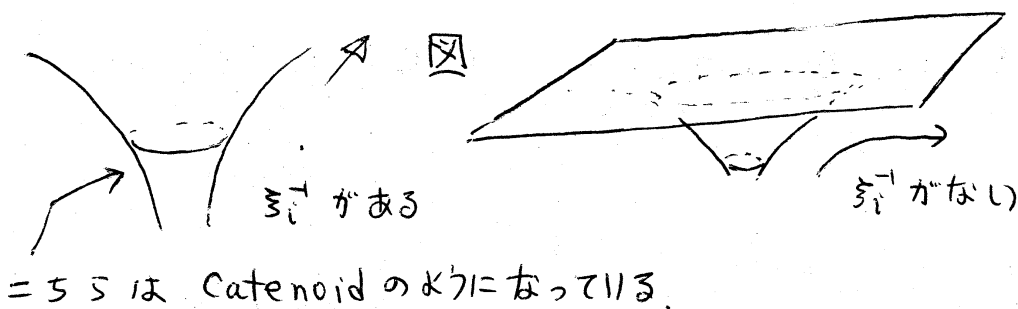 図
ξᵢ⁻¹ がある
ξᵢ⁻¹ がない
こちらは Catenoid のようになっている.